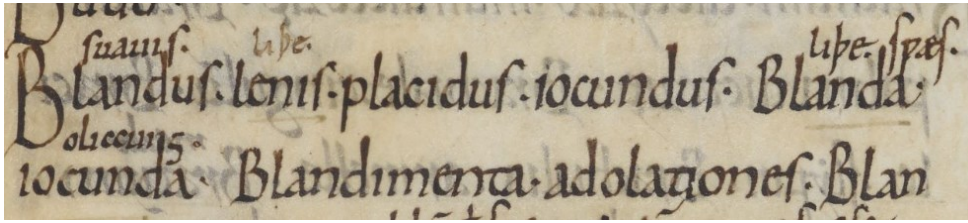 suauis. liþe. liþe. spæs.
Blandus. lenis. placidus. iocundus. Blanda.
oliccung.
iocunda. Blandimenta. adolationes. Blan